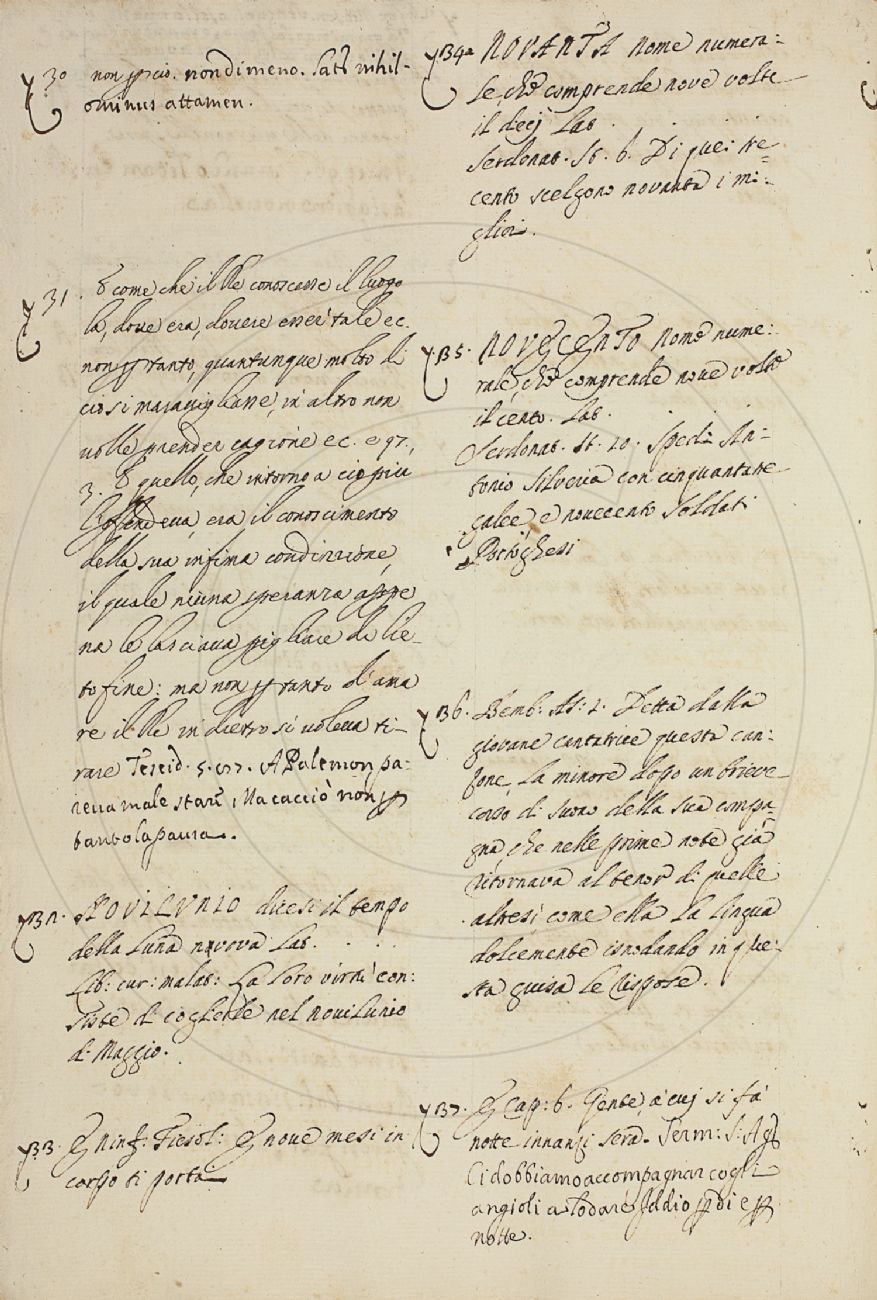 30 non perciò. nondimeno. Lat. nihil-
ominus attamen.
31. E come che il Re conoscesse il luogo
là, dove era, dovere esser tale ec.
non per tanto, quantunque molto di
ciò si maravigliasse, in altro non
volle prender cagione ec. e 97.
3. E quello, che intorno a ciò più
l'offendeva, era il conoscimento
della sua infima condizione,
il quale niuna speranza appe
na le lasciava pigliare di lie-
to fine: ma non per tanto di ama
re il Re indietro si voleva ti-
rare Teseid. 5. A Palemon pa-
reva male stare, Ma cacciò non per
tanto la paura.
32. NOVILUNIO dicesi il tempo
della Luna nuova Lat.
Lib: cur: malat: La loro virtù con:
siste di coglierle nel novilunio
di Maggio.
33. E ninf: Fiesol: E nove mesi in
corpo ti portai
34 NOVANTA Nome numera:
le, che comprende nove volte
il decj Lat.
Serdonat. St. 6. Di quei tre=
cento scelgono novanta i mi:
gliori.
35. NOVECENTO Nome nume:
rale, che comprende nove volte
il cento. Lat.
Serdonat. St. 20. Spedì An-
tonio Silveria con cinquantatre
galee, e novecento Soldati
Portoghesi
36. Bemb: As: 1. Detta dalla
giovane cantatrice questa can:
zone, la minore dopo un brieve
corso di suono della sua compa:
gna, che nelle prime note già
ritornava al tenor di quelle
altresì come ella la lingua
dolcemente isnodando in que:
sta guisa le rispose.
37. E Cap: 6. Gente, a cuj si fà
notte innanzi sera. Serm: S: Ag:
Ci dobbiamo accompagnar cogli
angioli a lodare Iddio per dì e per
notte.